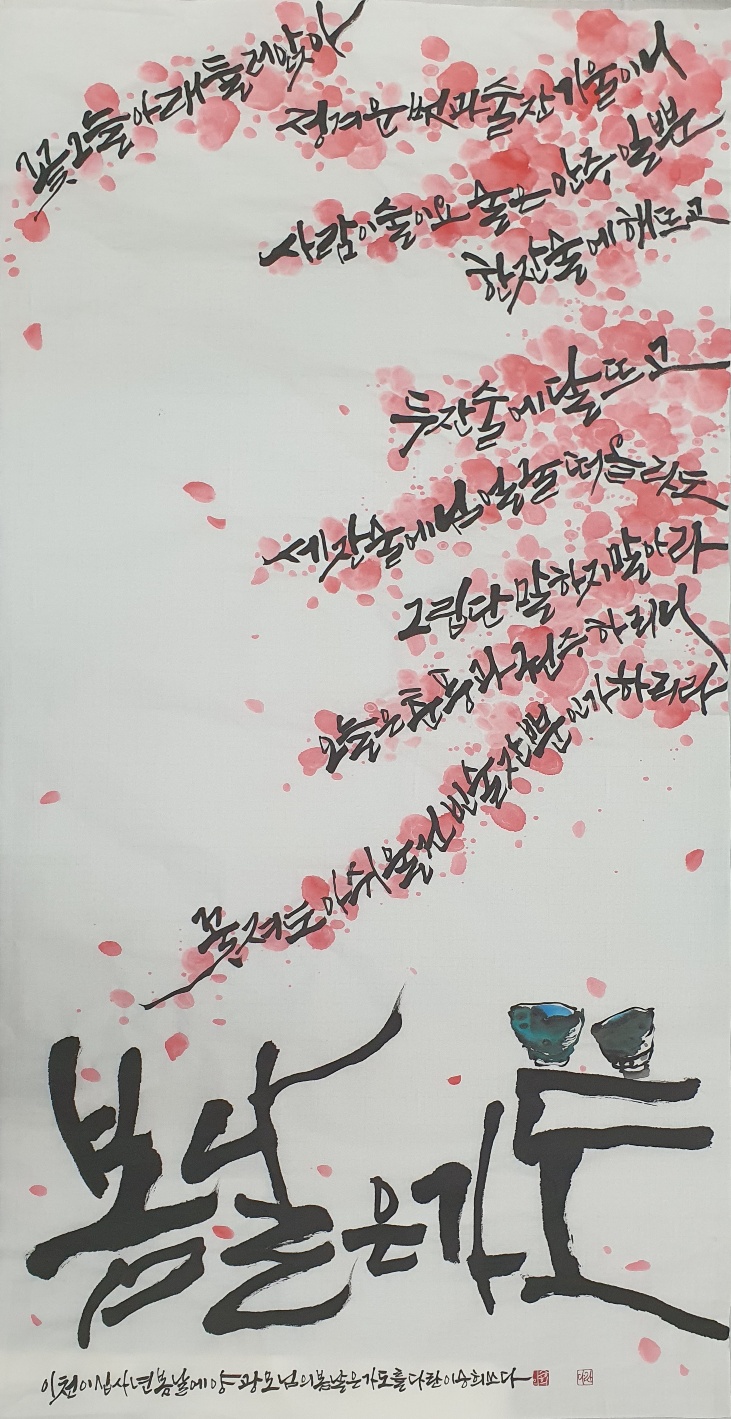 꽃그늘 아래 둘러앉아
정겨운 벗과 술잔 기울이니
사람이 술이요 술은 안주일 뿐
한 잔 술에 해 뜨고
두 잔 술에 달 뜨고
세 잔 술에 님 얼굴 떠올라도
그립단 말하지 말아라
오늘은 춘풍과 권주하리니
꽃 져도 아쉬울 건 빈 술잔뿐인가 하리라
봄날은 가도
이천이십사년 봄날에 양광모님의 봄날은 가도를 이승희 쓰다